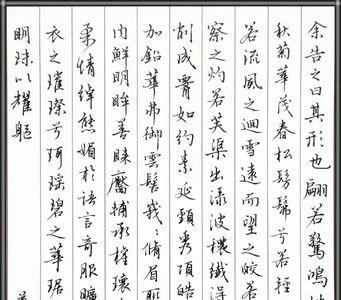 余告之曰其形也翩若驚鴻
秋菊華茂春松髣髴兮若輕
若流風之迴雪遠而望之皎若
察之灼若芙渠出渌波穠纖得
削成腰如約素延頸秀項皓
加鉛華弗御雲髻峩峩脩眉
內鮮明眸善睞靨輔承權瓌
柔情綽態媚於語言奇服曠
衣之璀璨兮珥瑤碧之華琚
明珠以耀軀